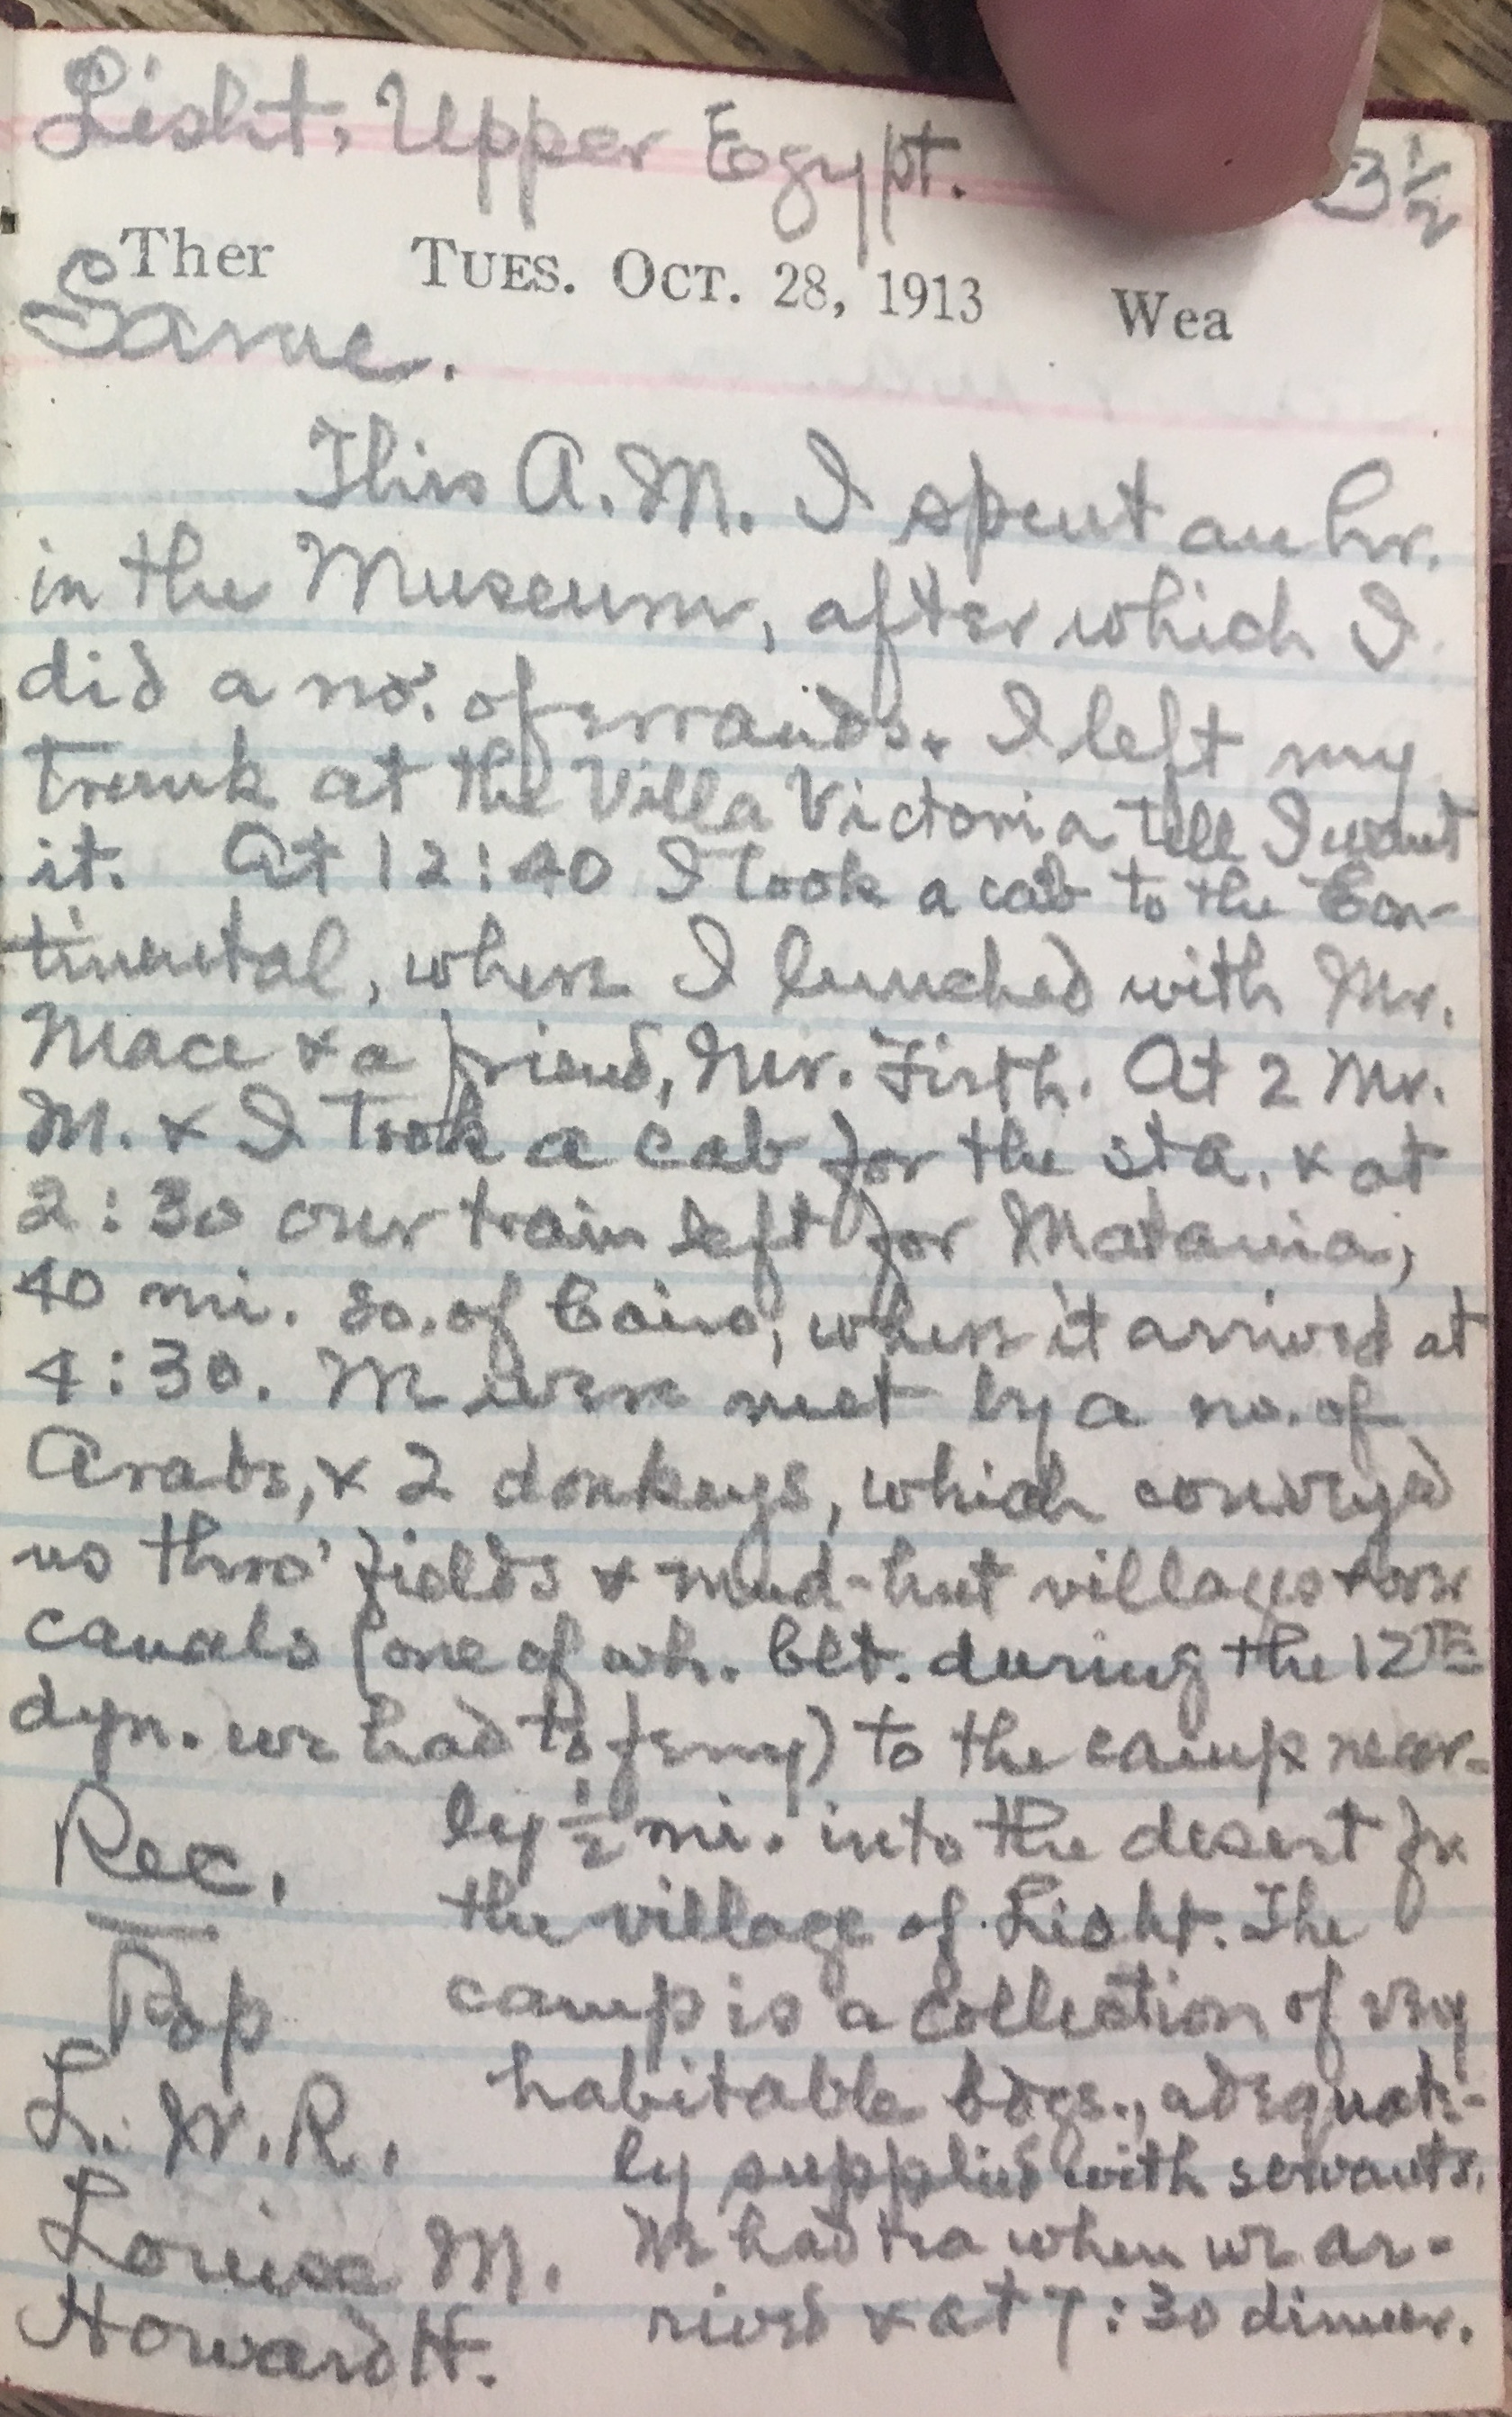 Lisht, Upper Egypt.
3½
Ther TUES. OCT. 28, 1913 Wea
Same.
This A.M. I spent an hr.
in the Museum, after which I
did a no. of errands. I left my
trunk at the Villa Victoria till I want
it. At 12:40 I took a cab to the Con-
tinental, where I lunched with Mr.
Mace & a friend, Mr. Firth. At 2 Mr.
M. & I took a cab for the sta. & at
2:30 our train left for Matania,
40 mi. so. of Cairo, where it arrived at
4:30. We were met by a no. of
Arabs, & 2 donkeys, which conveyed
us thro' fields & mud-hut villages & over
canals (one of wh. blt. during the 12TH
dyn. we had to ferry) to the camp near-
ly ½ mi. into the desert fr
the village of Lisht. The
camp is a collection of very
habitable bdgs., adequate-
ly supplied with servants.
We had tea when we ar-
rived & at 7:30 dinner.
Rec.
Pop
L. W. R.
Louise M.
Howard H.